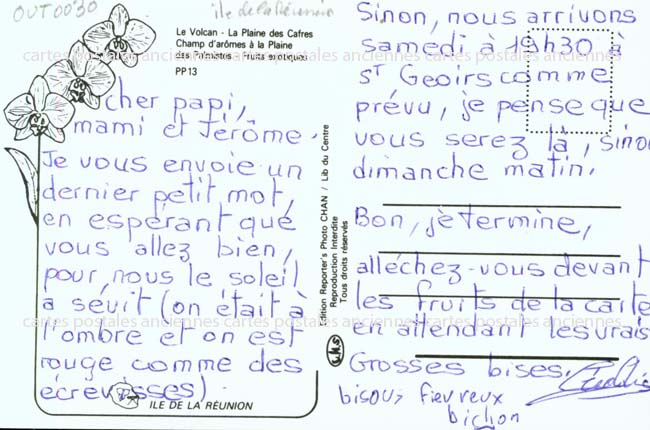 OUT0030
île de la Réunion
Le Volcan - La Plaine des Cafres
Champ d'arômes à la Plaine
des Palmistes - Fruits exotiques
PP13
cher papi,
mami et Jérôme.
Je vous envoie un
dernier petit mot,
en espérant que
vous allez bien,
pour nous le soleil
a sévit (on était à
l'ombre et on est
rouge comme des
écrevisses).
ILE DE LA RÉUNION
Edition Reporter's Photo CHAN / Lib du Centre
Reproduction Interdite
Tous droits réservés
Sinon, nous arrivons
samedi à 19h30 à
St Geoirs comme
prévu, je pense que
vous serez là, sinon
dimanche matin.
Bon, je termine,
alléchez-vous devant
les fruits de la carte
en attendant les vrais
Grosses bises.
bisous fievreux
bichon
cartes postales anciennes cartes postales anciennes cartes postales anciennes
cartes postales anciennes cartes postales anciennes cartes postales anciennes